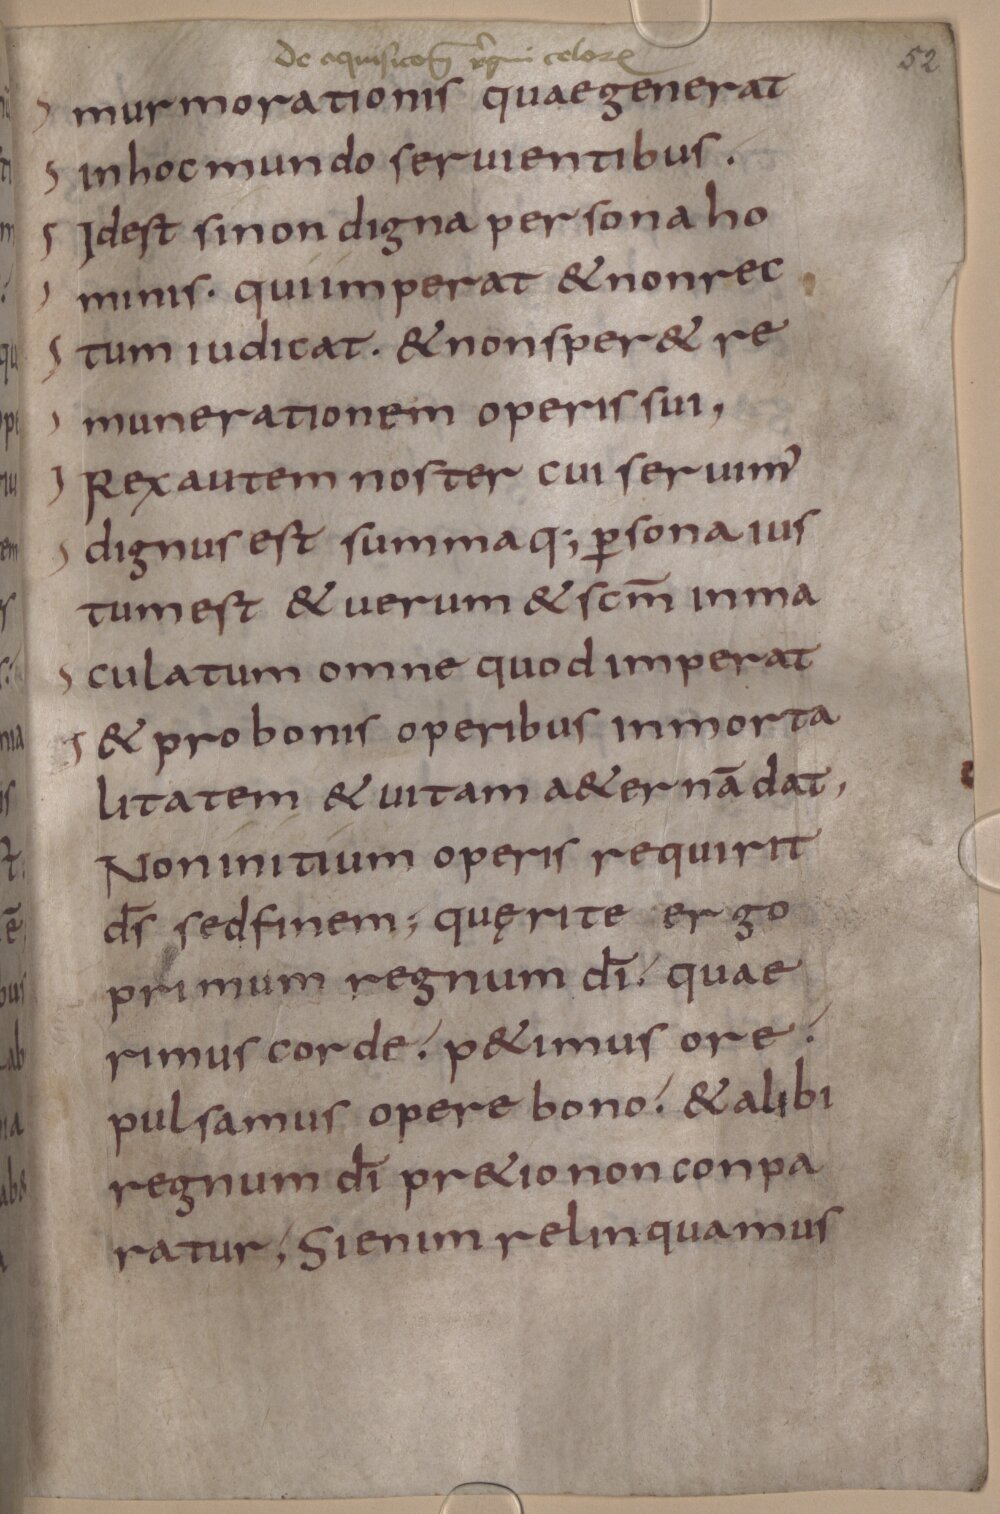 52
murmorationis quae generat
in hoc mundo seruientibus.
Idest si non digna persona ho
minis. qui imperat & non rec
tum iudicat. & non sper& re
munerationem operis sui,
Rex autem noster cui seruim᾽
dignus est summaq; ꝑsona ius
tum est & uerum & scm̄ inma
culatum omne quod imperat
& pro bonis operibus inmorta
litatem & uitam a&ernā dat,
Non initium operis requirit
ds̄ sed finem; quęrite ergo
primum regnum dī. quae
rimus corde. p&imus ore.
pulsamus opere bono. & alibi
regnum dī pr&io non conpa
ratur; Si enim relinquamus